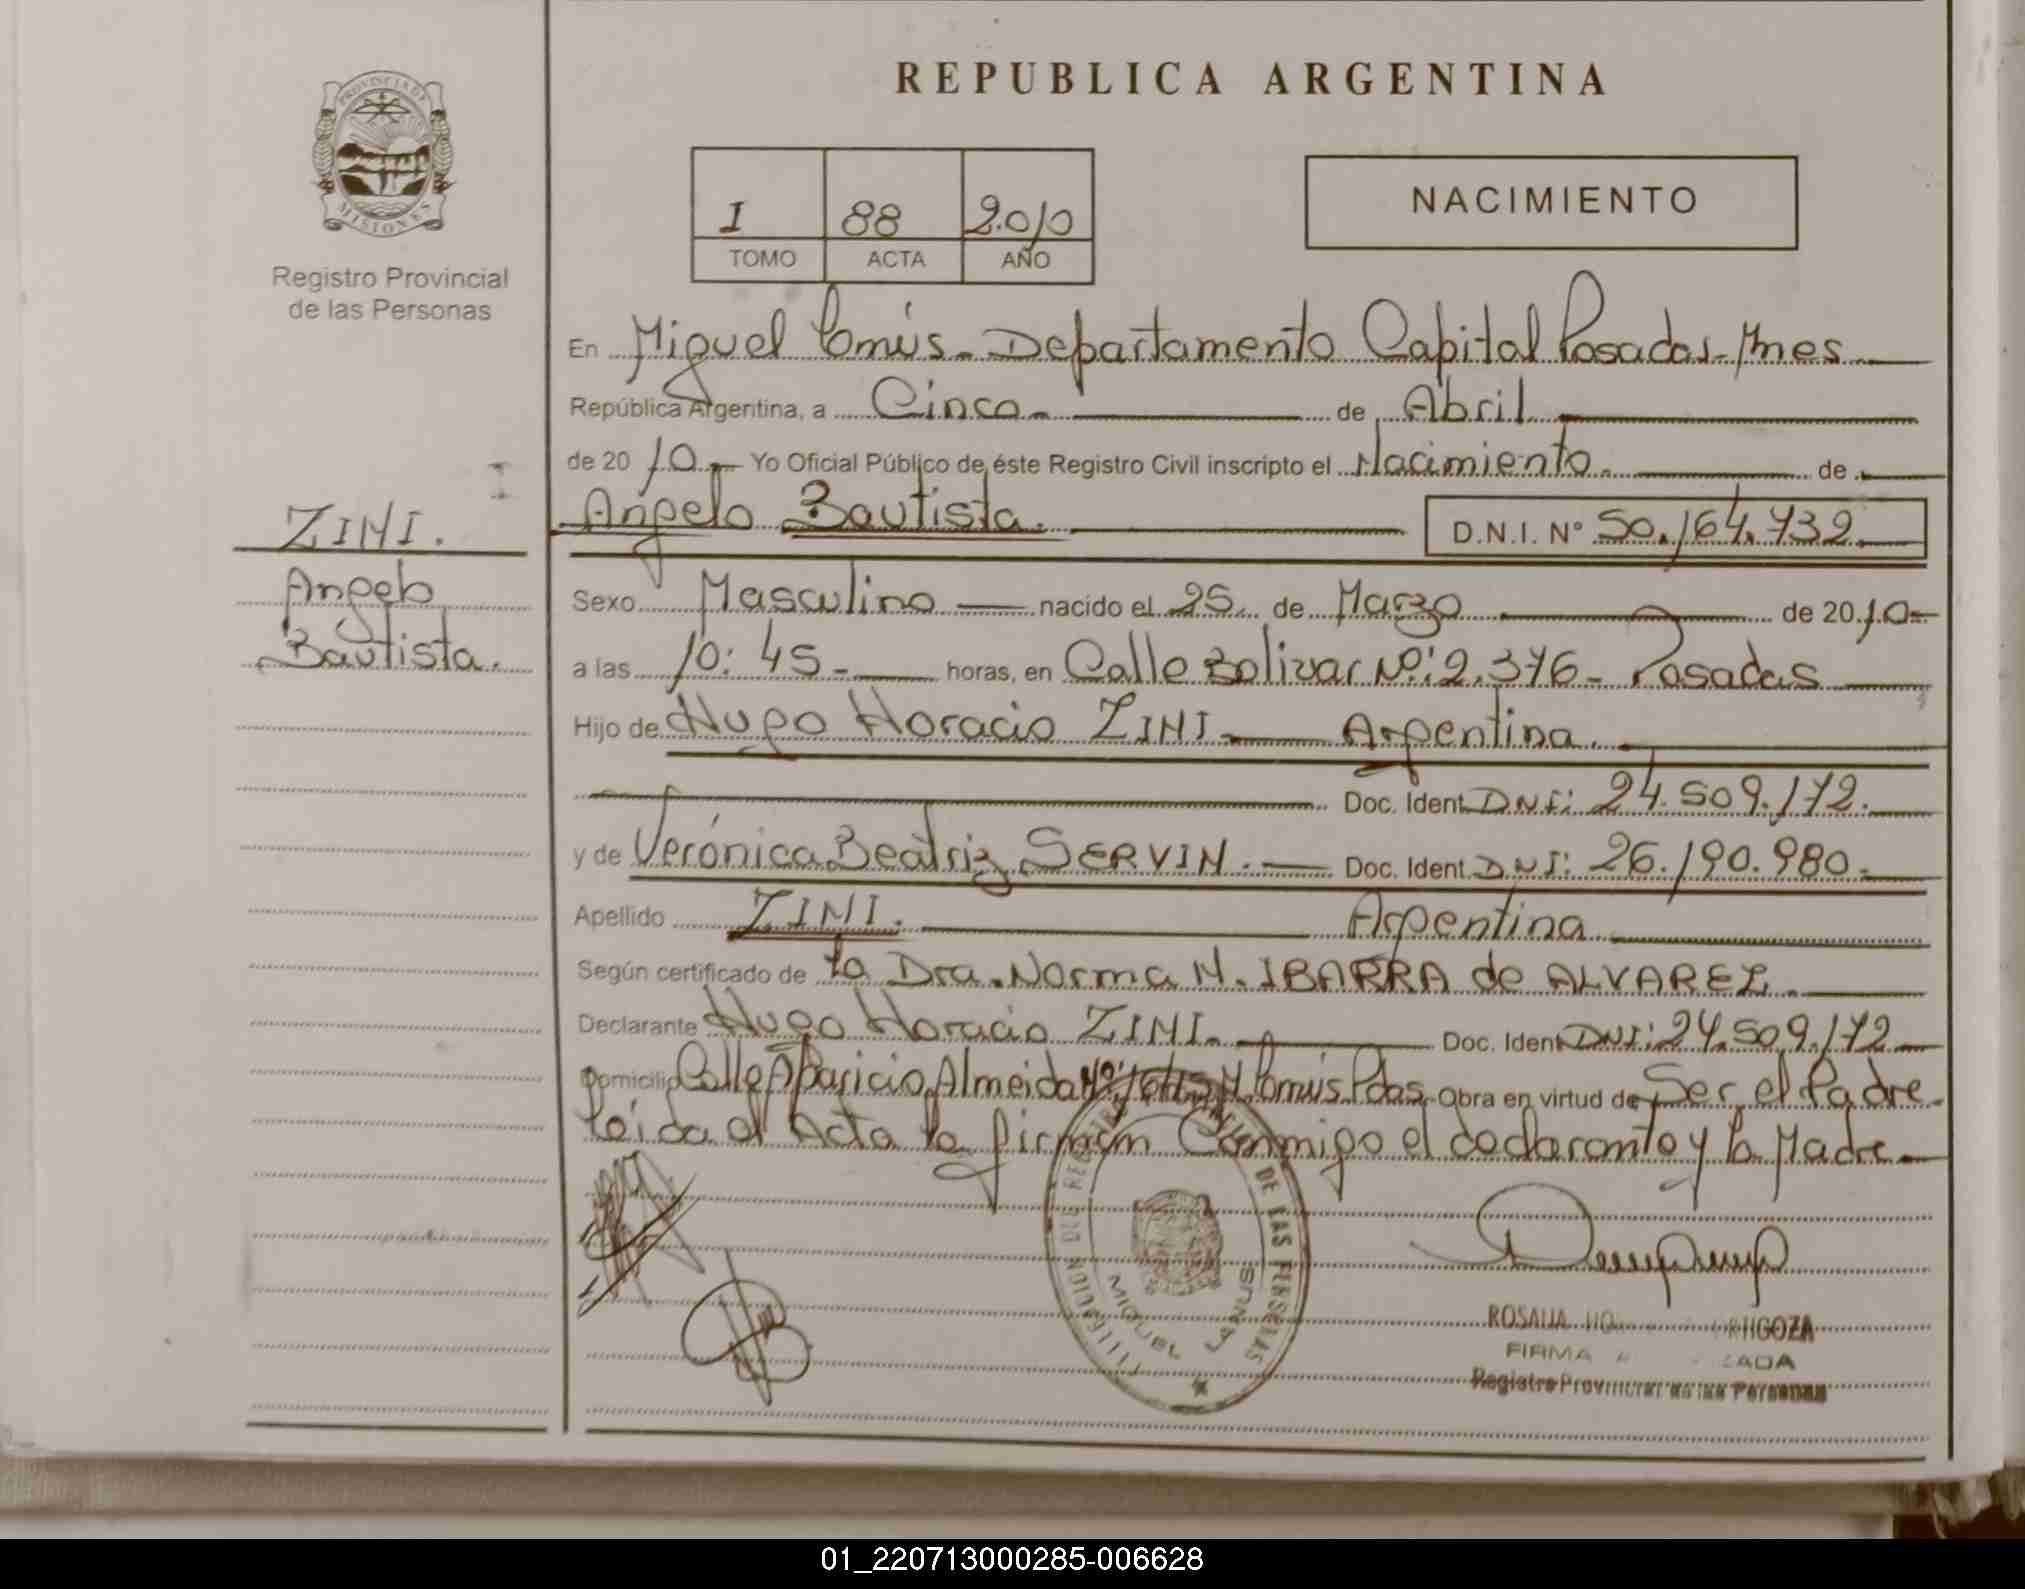 PROVINCIA DE
MISIONES
Registro Provincial
de las Personas
ZINI.
Angelo
Bautista.
REPUBLICA ARGENTINA
I 88 2.010
TOMO ACTA AÑO
NACIMIENTO
En Miguel Lanús - Departamento Capital Posadas - Mnes
República Argentina, a Cinco - de Abril
de 2010 - Yo Oficial Público de éste Registro Civil inscripto el Nacimiento. de
Angelo Bautista. D.N.I. Nº 50.164.732
Sexo Masculino nacido el 25 de Marzo de 2010-
a las 10:45- horas, en Calle Bolivar Nº: 2.376 - Posadas
Hijo de Hugo Horacio ZINI - Argentina.
Doc. Ident. D.N.I: 24.509.172.
y de Verónica Beatriz SERVIN. Doc. Ident. D.N.I: 26.190.980.
Apellido ZINI. Argentina
Según certificado de la Dra. Norma N. IBARRA de ALVAREZ.
Declarante Hugo Horacio ZINI. Doc. Ident DNI: 24.509.172
Domicilio Calle Aparicio Almeida Nº M. Lanús Pdas. Obra en virtud de Ser el Padre
Leida el Acta la firman Conmigo el declarante y la Madre
DE LAS PERSONAS
MIGUEL LANUS
ROSALIA
FIRMA
Registro Provincial de las Personas
01_220713000285-006628